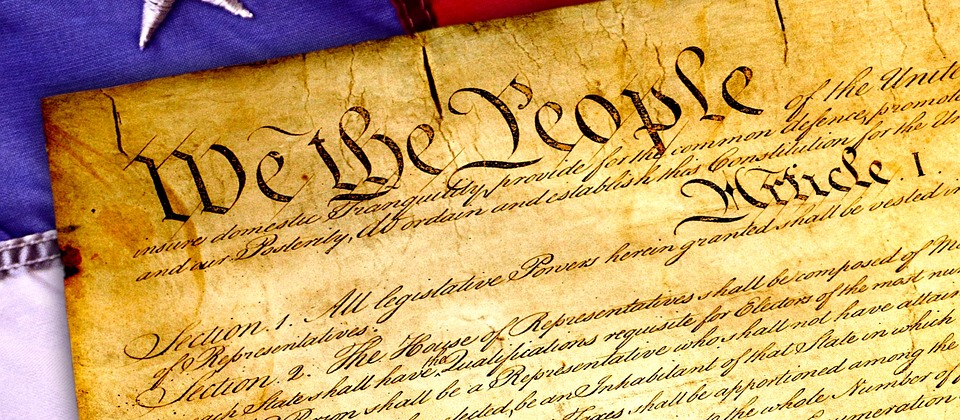 We the People of the Unite
insure domestic Tranquility, provide for the common defence, promote
and our Posterity, do ordain and establish this Constitution for the Un
Article. I.
Section. 1. All legislative Powers herein granted shall be vested in
of Representatives.
Section. 2. The House of Representatives shall be composed of M
each State shall have the Qualifications requisite for Electors of the most num
Person shall be a Representative who shall not have attain
elected, be an Inhabitant of that State in which
Taxes shall be apportioned among the
to the whole Number of
enumeration